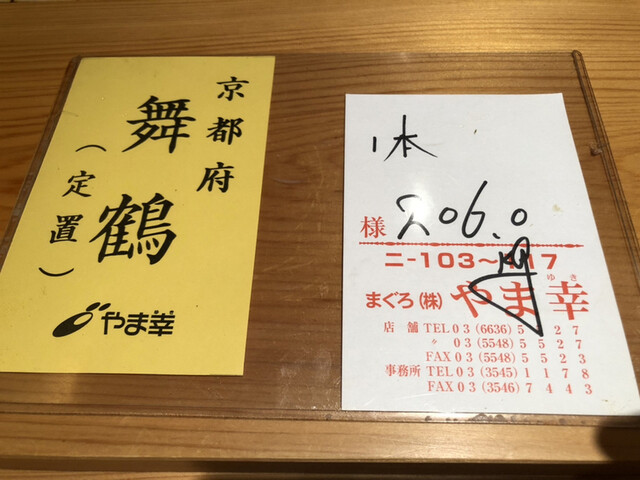 京都府
舞鶴
（定置）
やま幸
1本
様 206.0
ニ-103~117
まぐろ(株) やま幸
ゆき
店舗 TEL 03(6636)5 27
〃 03(5548)5527
FAX 03(5548)5523
事務所 TEL 03(3545)1178
FAX 03(3546)7443